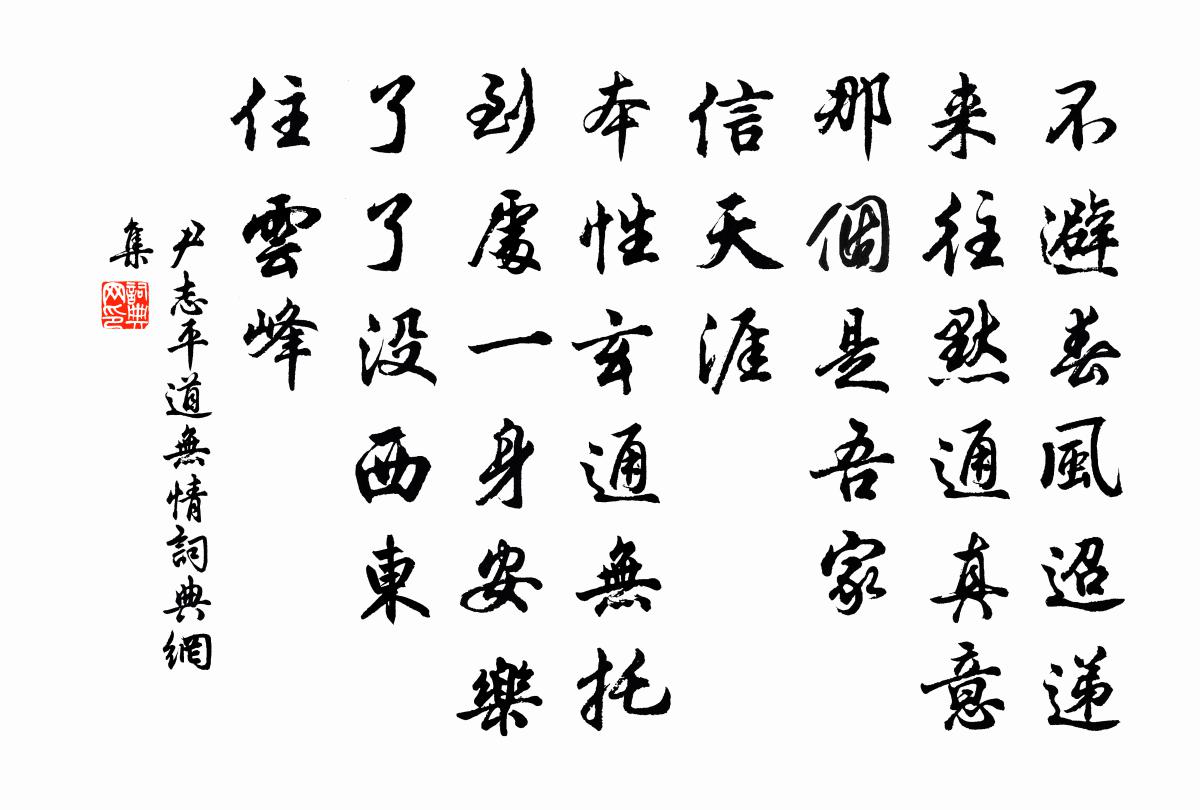 不避春風迢递
来往默通真意
那個是吾家
信天涯
本性玄通無托
到處一身安樂
了了没西東
住雲峰
尹志平道無情詞典網
集
詞典
网印